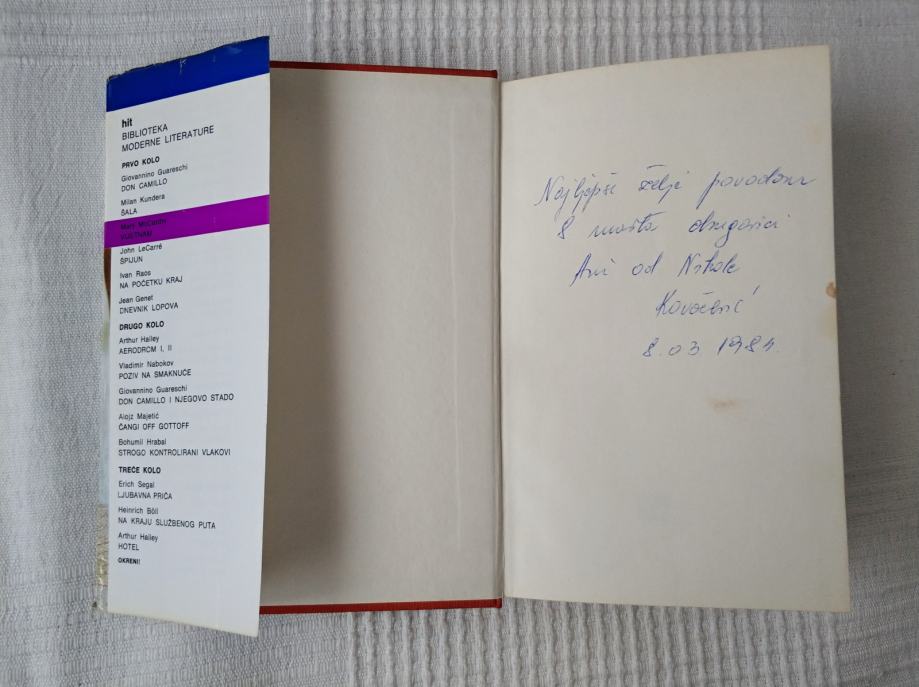 hit
BIBLIOTEKA
MODERNE LITERATURE
PRVO KOLO
Giovannino Guareschi
DON CAMILLO
Milan Kundera
ŠALA
Mary McCarthy
VIJETNAM
John LeCarré
ŠPIJUN
Ivan Raos
NA POČETKU KRAJ
Jean Genet
DNEVNIK LOPOVA
DRUGO KOLO
Arthur Hailey
AERODROM I, II
Vladimir Nabokov
POZIV NA SMAKNUĆE
Giovannino Guareschi
DON CAMILLO I NJEGOVO STADO
Alojz Majetić
ČANGI OFF GOTTOFF
Bohumil Hrabal
STROGO KONTROLIRANI VLAKOVI
TREĆE KOLO
Erich Segal
LJUBAVNA PRIČA
Heinrich Böll
NA KRAJU SLUŽBENOG PUTA
Arthur Hailey
HOTEL
OKRENI!
Najljepše želje povodom
8 marta drugarici
od
8.03.